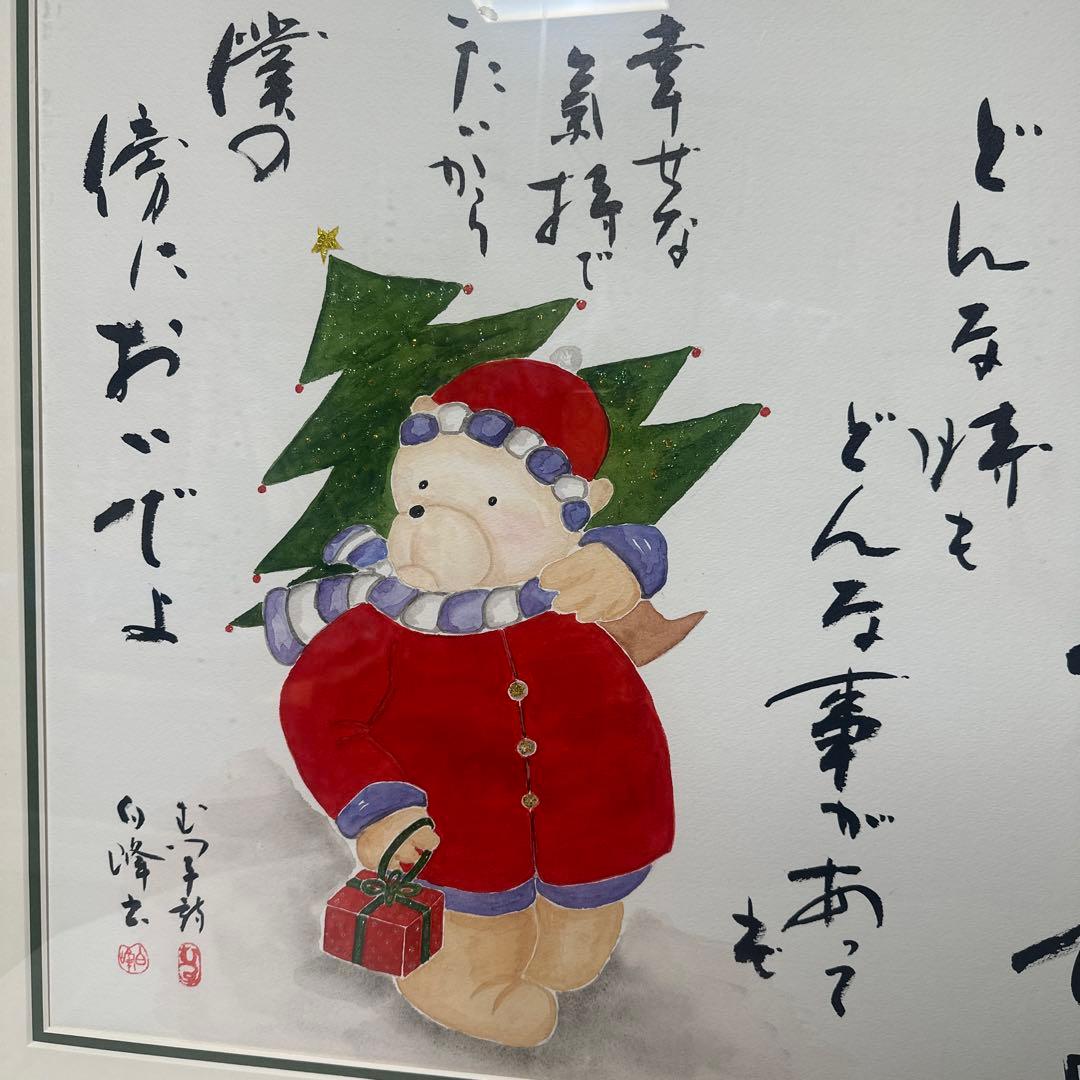 どんな時も
どんな事があって
も
幸せな
氣持で
いたいから
僕の
傍においでよ
むつ子詩
白峰書